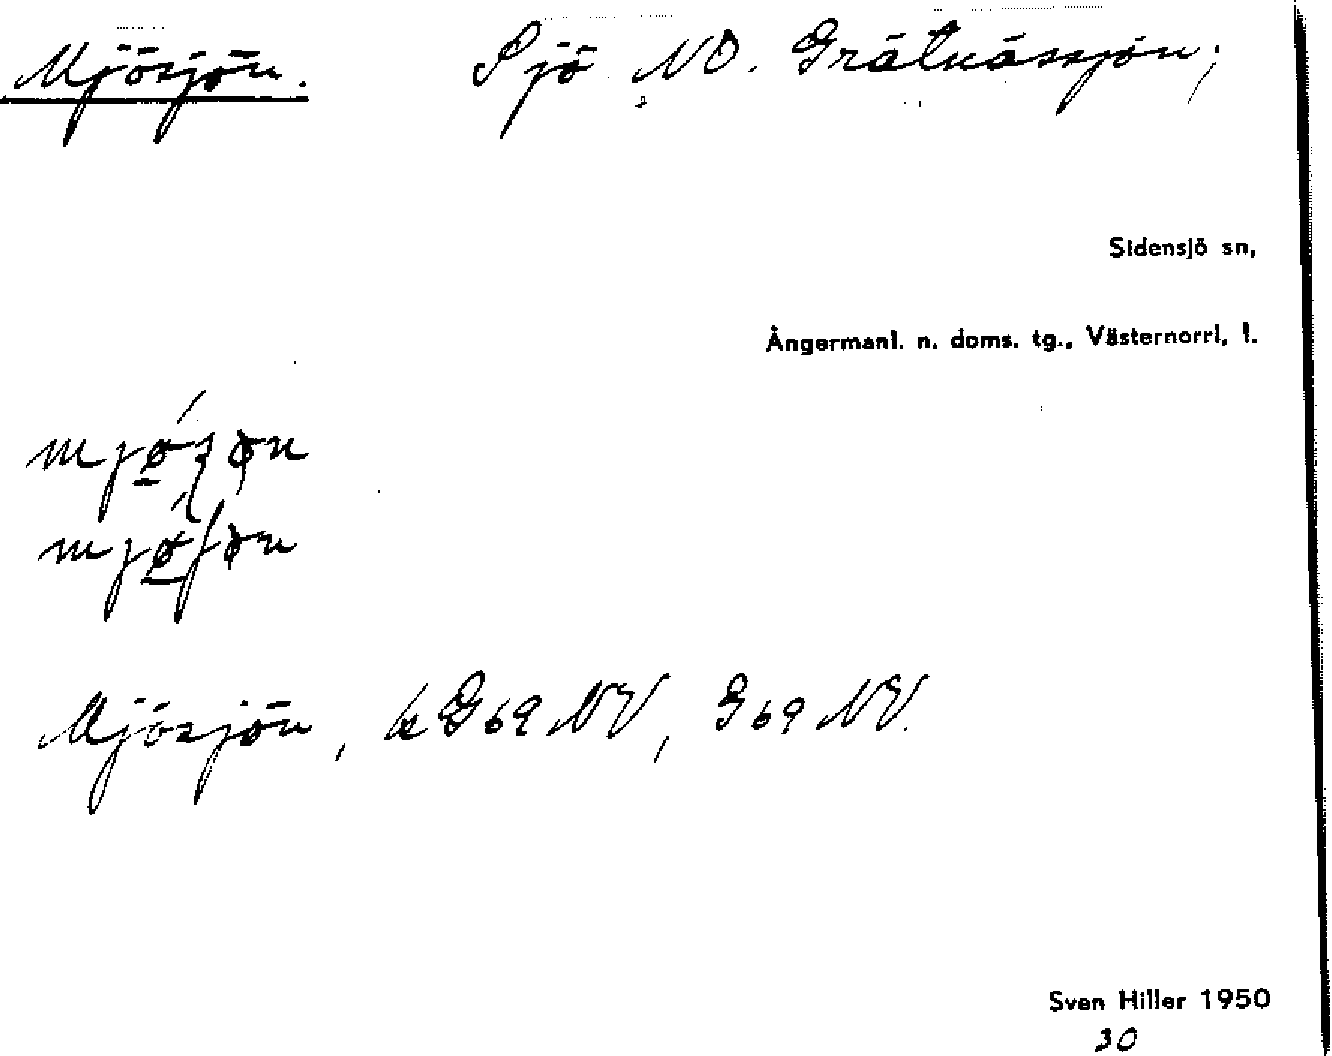 Mjösjön. Sjö NO. Gråtnässjön;
Sidensjö sn,
Ångermanl. n. doms. tg., Västernorrl. l.
Mjösjön, k G69 NV, G69 NV.
Sven Hiller 1950
30